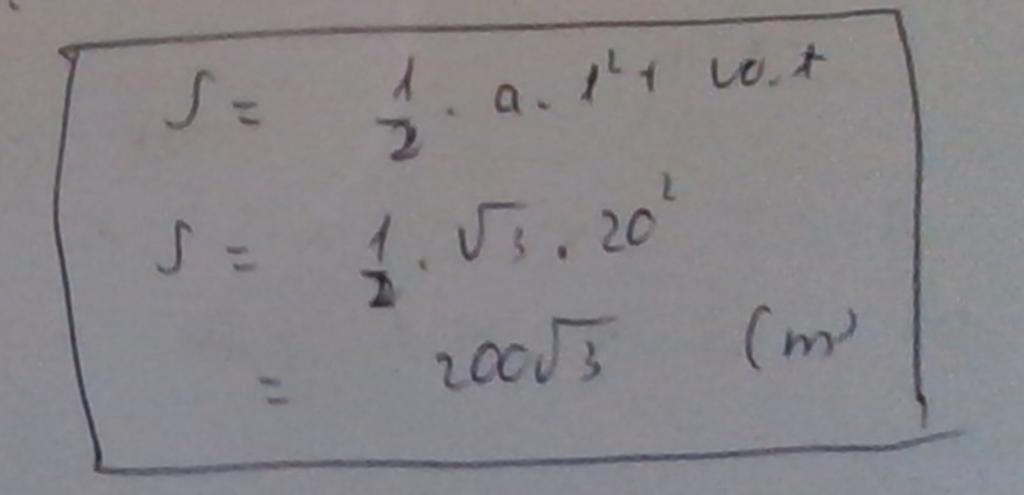 S = 1/2 . a . t² + vo . t
S = 1/2 . √3 . 20²
= 200√3 (m)